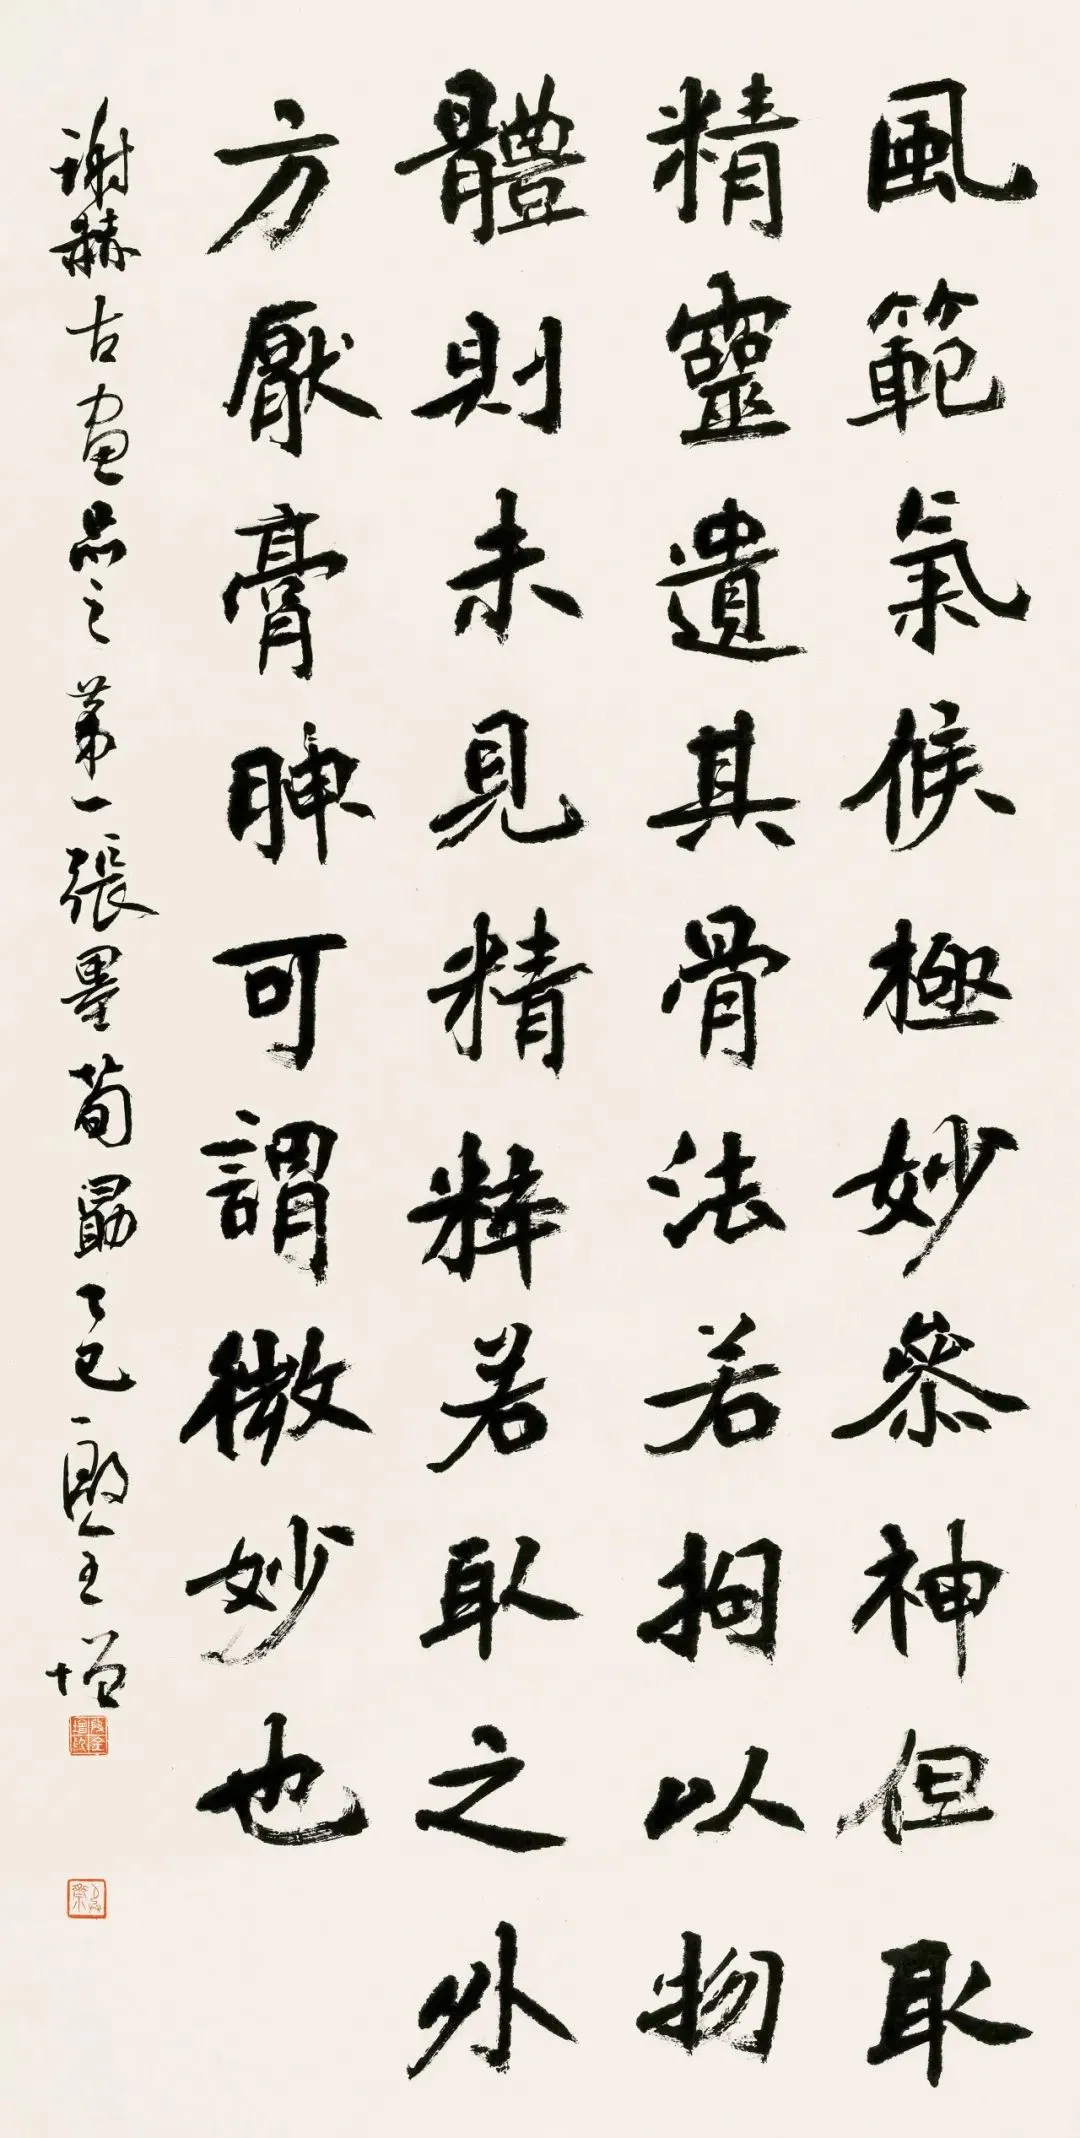 風範氣候極妙參神但取
精靈遺其骨法若拘以物
體則未見精粹若取之外
方厭膏腴可謂微妙也
謝赫古畫品之第一張墨荀勗乙巳殷全增
殷全增印